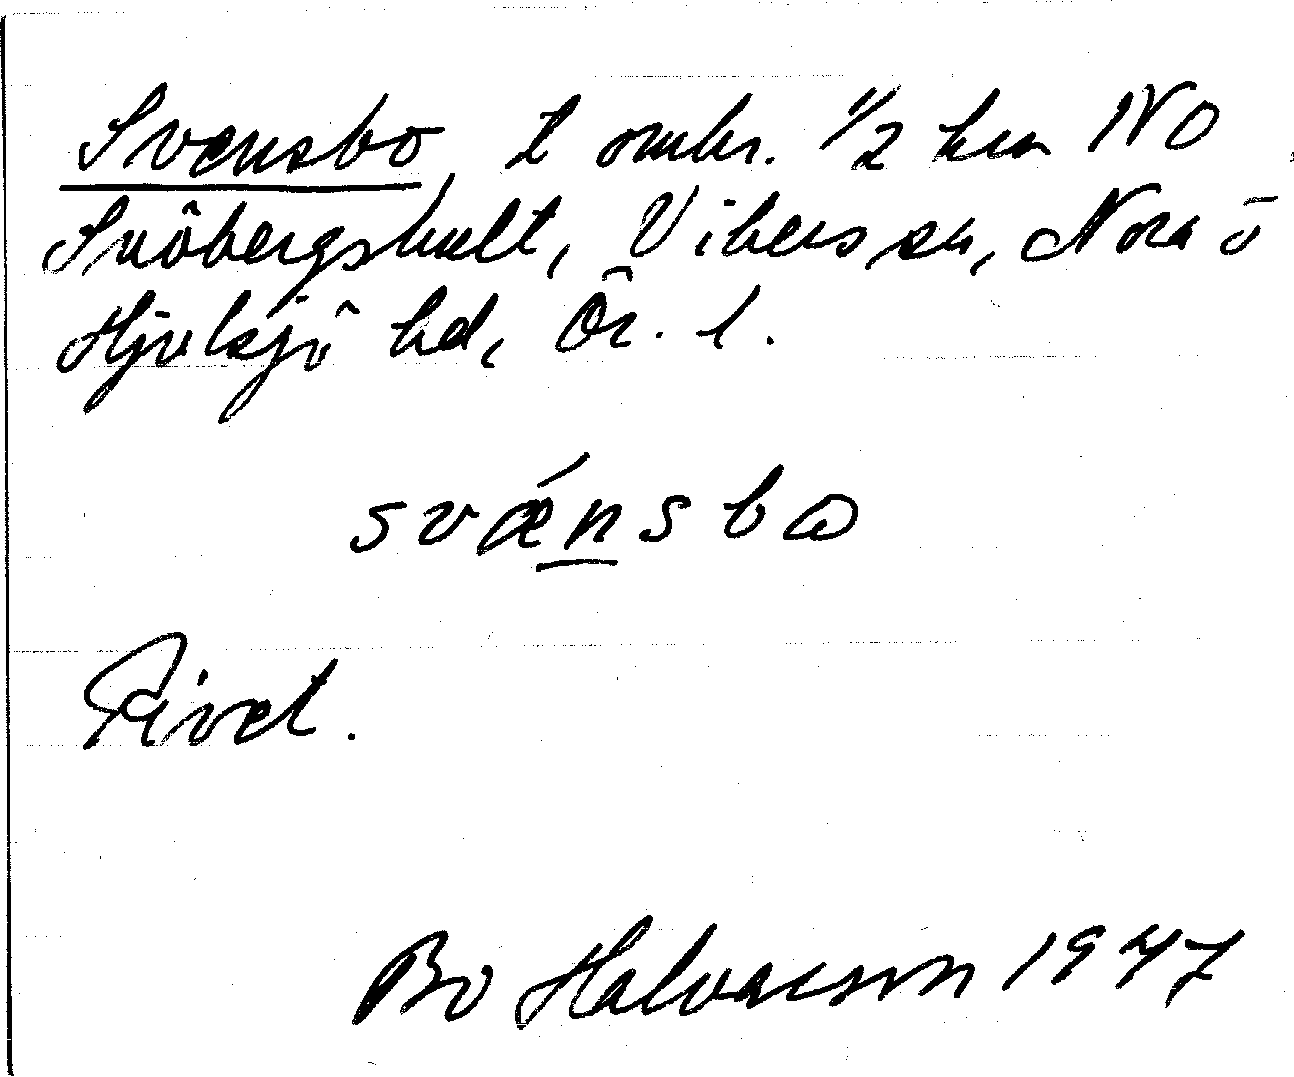 Svensbo, l omkr. 1/2 km NO
Snöbergshult, Vikers sn, Nora o
Hjulsjö hd, Ör. l.
svǽnsbω
Rivet.
Bo Halvarson 1947